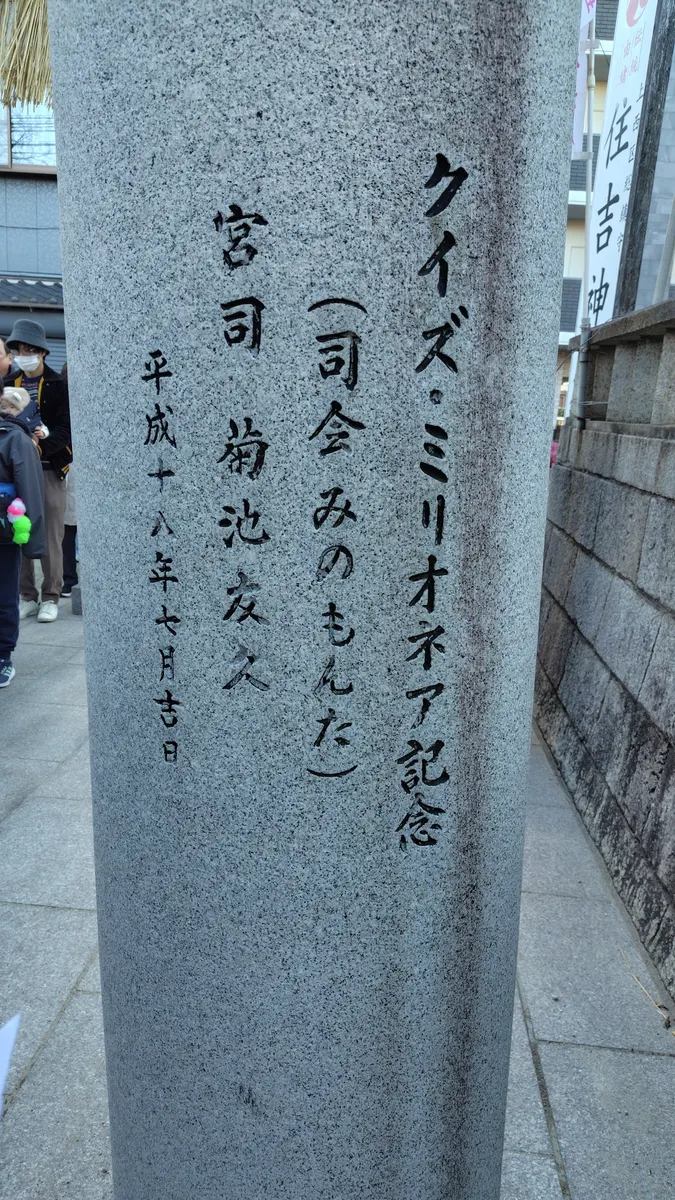 クイズ・ミリオネア記念
(司会みのもんた)
宮司 菊池友久
平成十八年七月吉日
住吉神